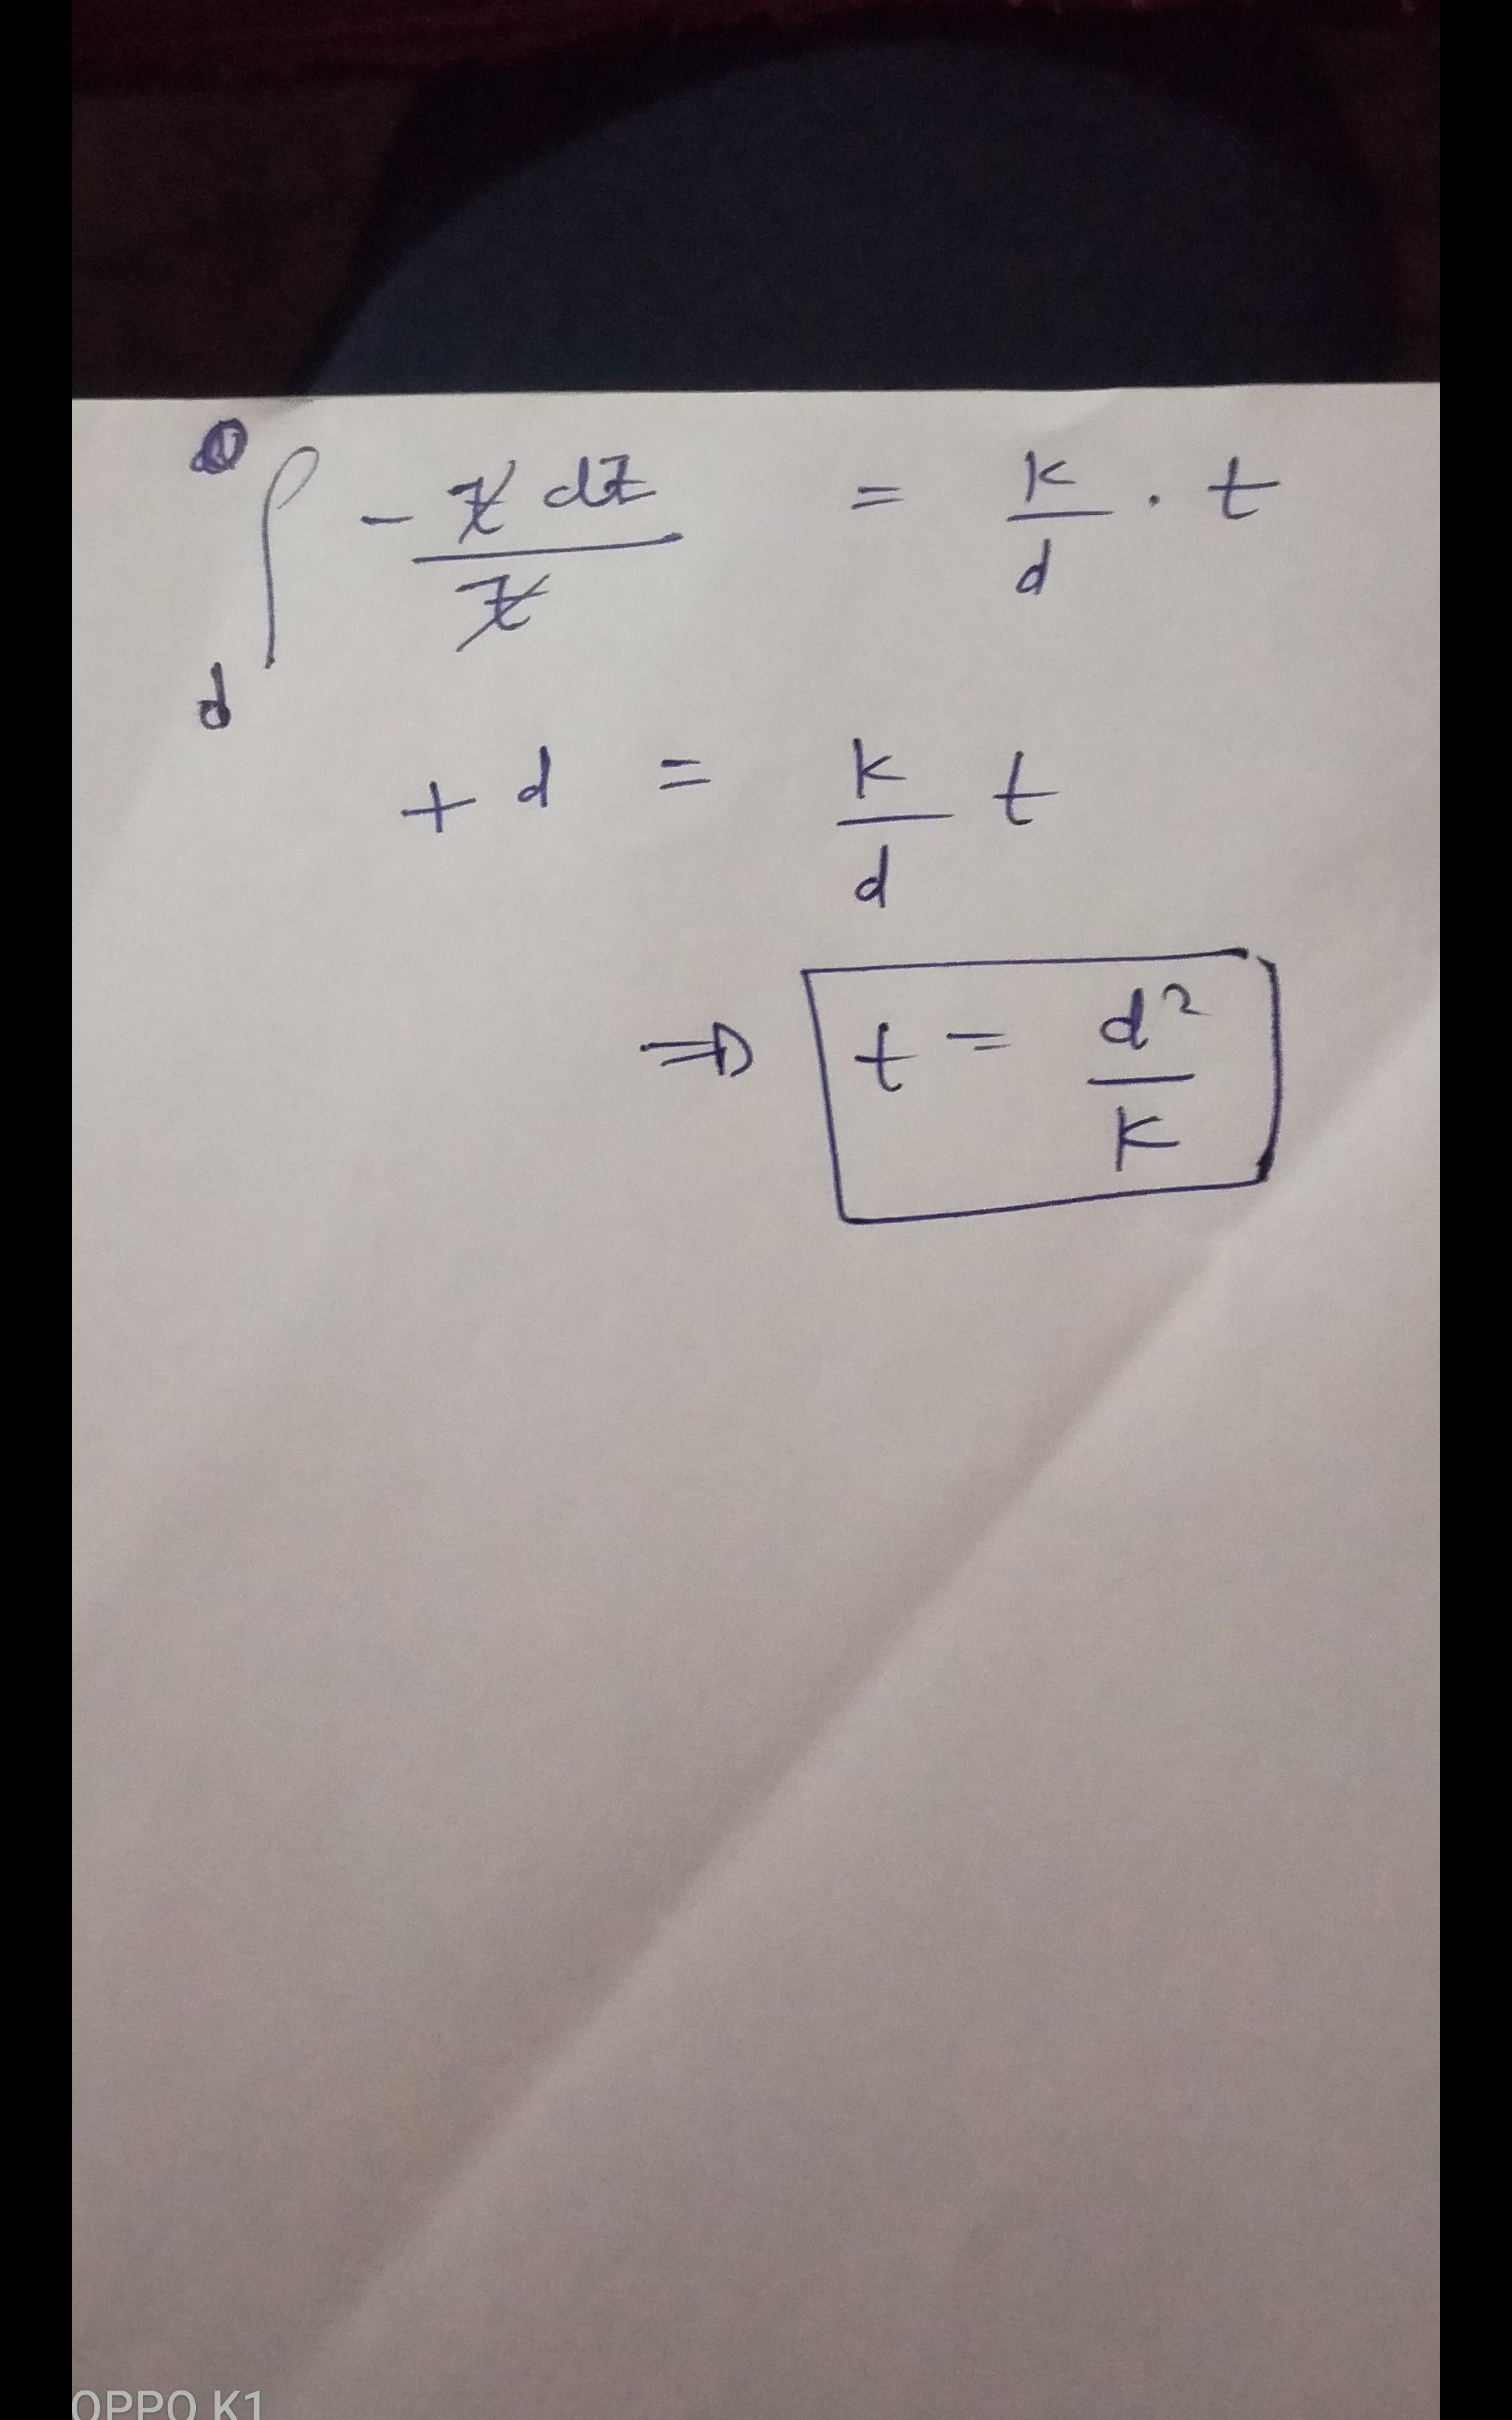 ∫ - z dz / z = k/d . t
d
+ d = k/d t
⇒ t = d²/k
OPPO K1